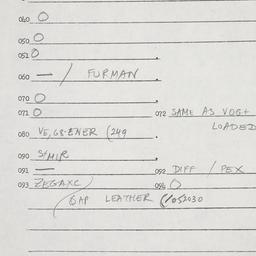 060 O
050 O
051 O
060 — / FURMAN
070 O
071 O 072 SAME AS VOG+
LOADED
080 VE, G8-ENER (249
090 S/MIR
091 — 092 DIFF / PEX
093 ZEGAXC 094 O
/ GAP LEATHER (1052030